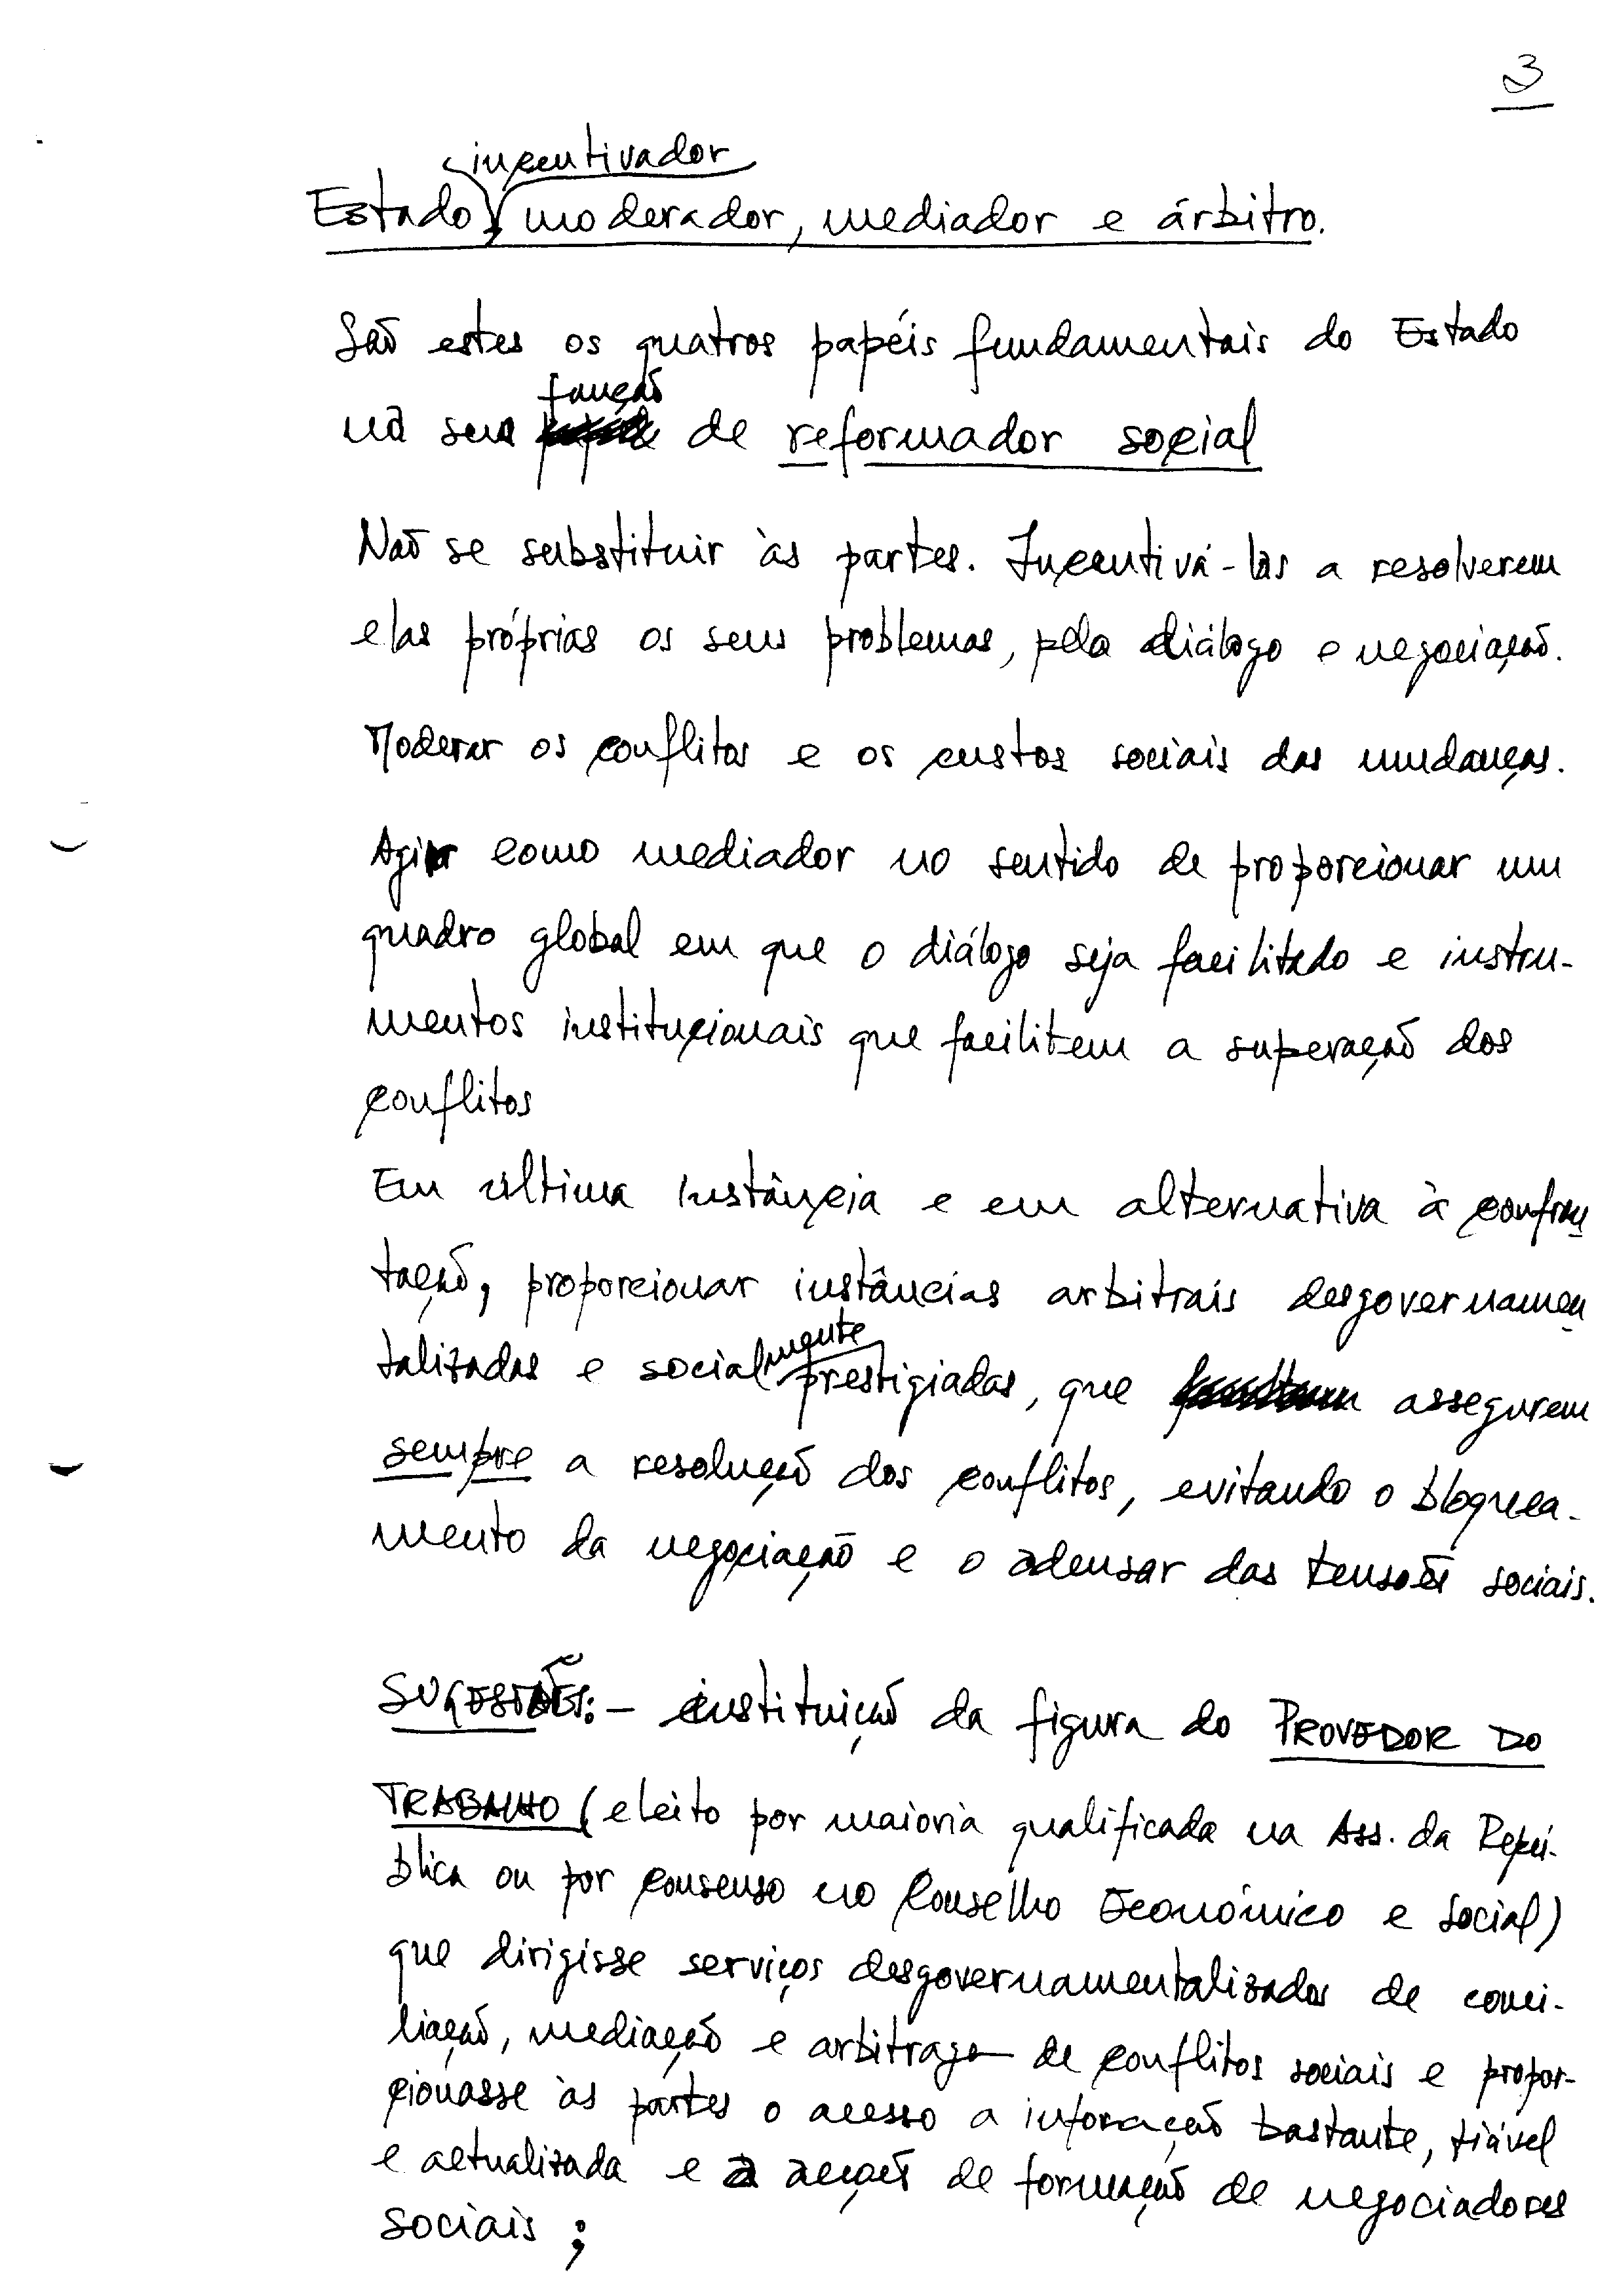 3
incentivador
Estado, moderador, mediador e árbitro.
São estes os quatros papéis fundamentais do Estado
função
na sua de reformador social
Não se substituir às partes. Incentivá-las a resolverem
elas próprias os seus problemas, pelo diálogo e negociação.
Moderar os conflitos e os custos sociais das mudanças.
Agir como mediador no sentido de proporcionar um
quadro global em que o diálogo seja facilitado e instru-
mentos institucionais que facilitem a superação dos
conflitos
Em última instância e em alternativa à confron
tação, proporcionar instâncias arbitrais desgovernamen
mente
talizadas e social prestigiadas, que assegurem
sempre a resolução dos conflitos, evitando o bloquea-
mento da negociação e o adensar das tensões sociais.
SUGESTÕES: - instituição da figura do PROVEDOR DO
TRABALHO (eleito por maioria qualificada na Ass. da Repú-
blica ou por consenso no Conselho Económico e Social)
que dirigisse serviços desgovernamentalizados de conci-
liação, mediação e arbitrage de conflitos sociais e propor-
cionasse às partes o acesso a informação bastante, fiável
e actualizada e a acções de formação de negociadores
sociais ;